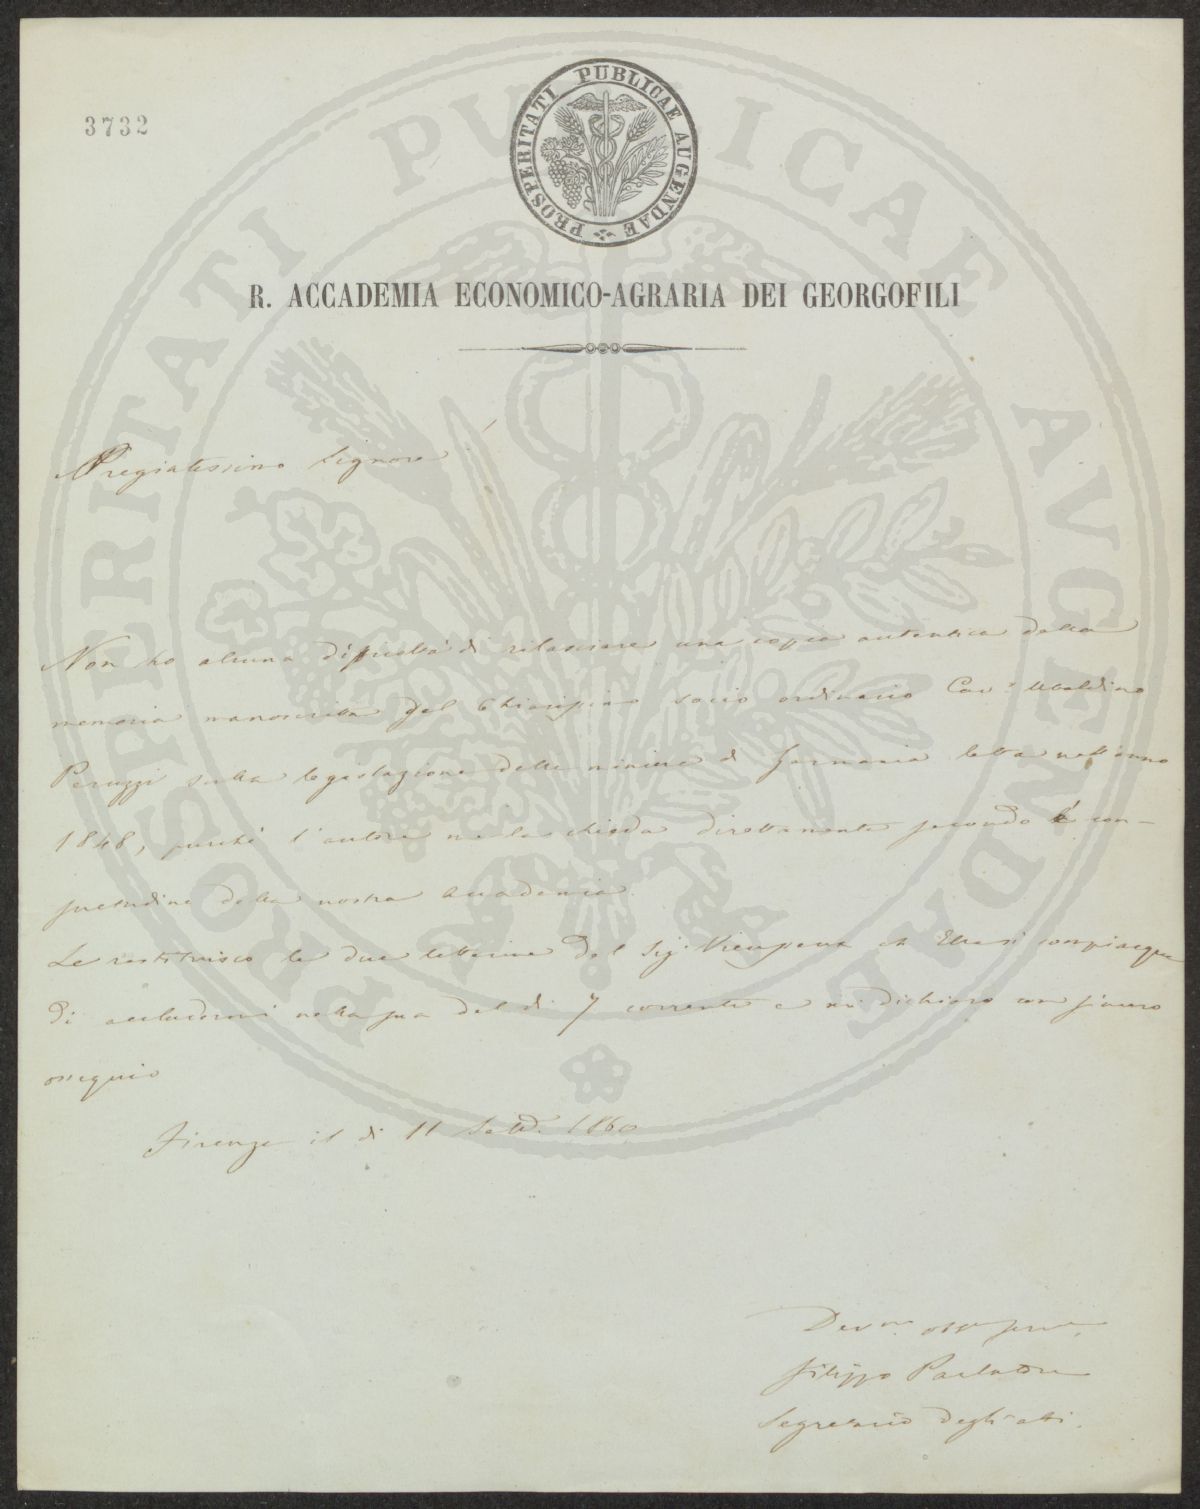 3732
PROSPERITATI PUBLICAE AUGENDAE
R. ACCADEMIA ECONOMICO-AGRARIA DEI GEORGOFILI
Pregiatissimo Signore
Non ho alcuna difficoltà di rilasciare una copia autentica della
memoria manoscritta del Chiarissimo socio ordinario Cav.e Ubaldino
Peruzzi sulla legislazione delle miniere di letta nell'anno
1848, purchè l'autore ne la chieda direttamente secondo è con-
suetudine della nostra Accademia.
Le restituisco le due letterine del Sig. ch Ella si compiacque
di accludermi nella sua del dì 7 corrente e mi dichiaro con sincero
ossequio
Firenze il dì 11 Sett. 1860
Dev.mo
Filippo Parlatore
Segretario degli atti.
PROSPERITATI PUBLICAE AVGENDAE